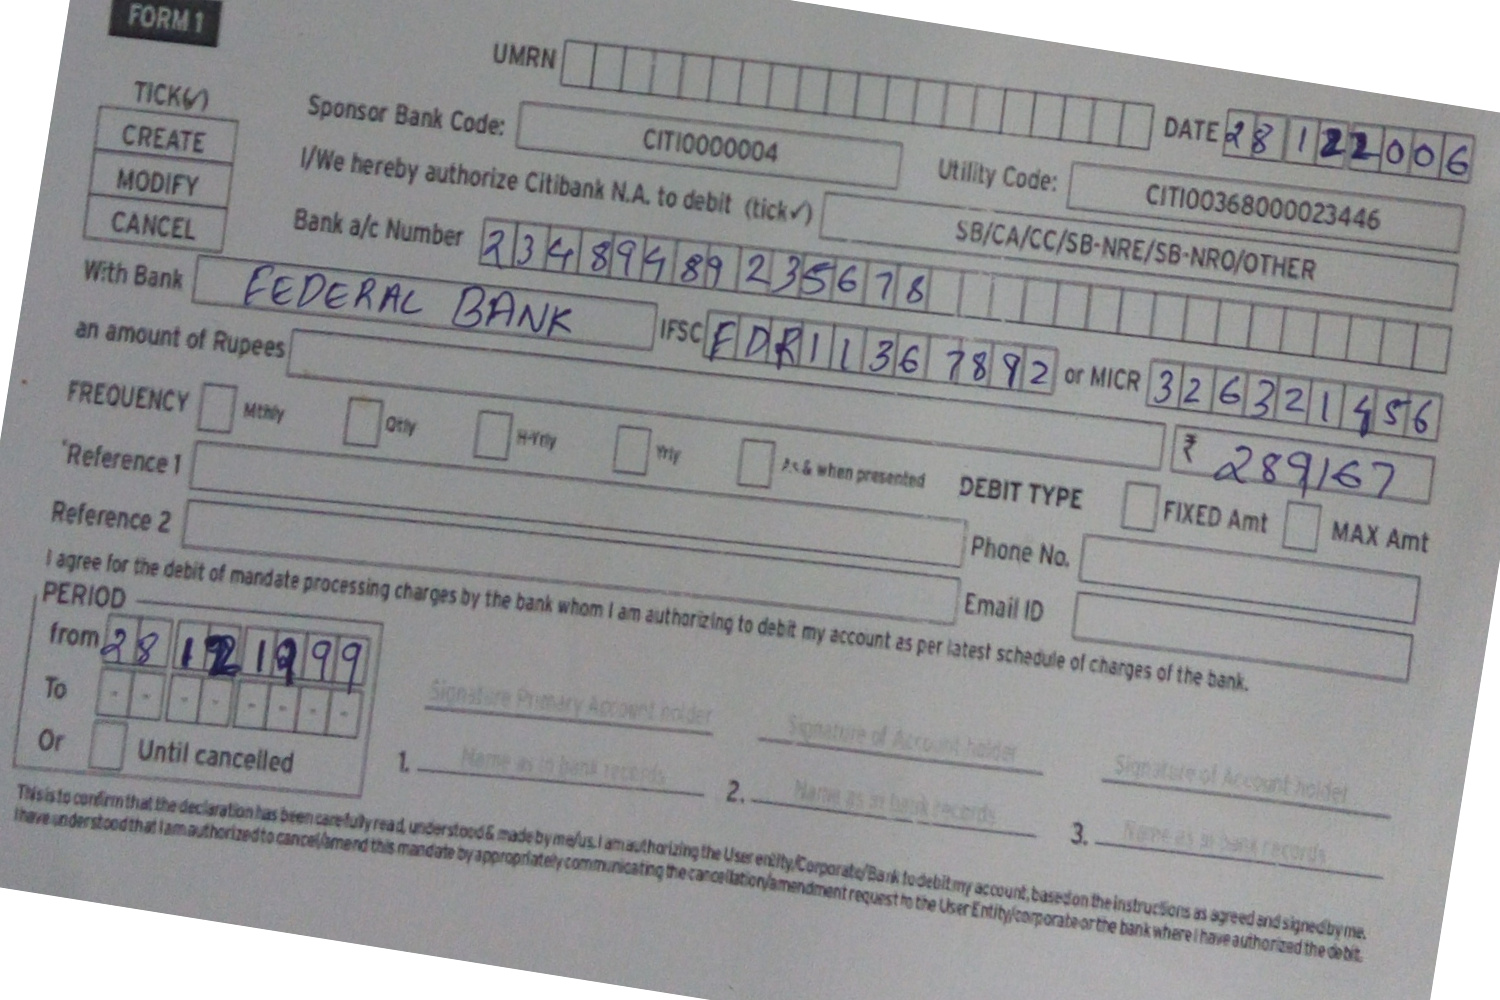 FORM 1
UMRN
DATE 28122006
TICK(✓)
CREATE
MODIFY
CANCEL
Sponsor Bank Code: CITI0000004
Utility Code: CITI00368000023446
I/We hereby authorize Citibank N.A. to debit (tick✓) SB/CA/CC/SB-NRE/SB-NRO/OTHER
Bank a/c Number 23489489235678
With Bank FEDERAL BANK IFSC FDRI1367892 or MICR 326321456
an amount of Rupees ₹ 289167
FREQUENCY Mthly Qtly H-Yrly Yrly As & when presented DEBIT TYPE FIXED Amt MAX Amt
*Reference 1 Phone No.
Reference 2 Email ID
I agree for the debit of mandate processing charges by the bank whom I am authorizing to debit my account as per latest schedule of charges of the bank.
PERIOD
from 28121999
To - - - - - - - -
Or Until cancelled
Signature Primary Account holder Signature of Account holder Signature of Account holder
1. Name as in bank records 2. Name as in bank records 3. Name as in bank records
This is to confirm that the declaration has been carefully read, understood & made by me/us. I am authorizing the User entity/Corporate/Bank to debit my account, based on the instructions as agreed and signed by me.
I have understood that I am authorized to cancel/amend this mandate by appropriately communicating the cancellation/amendment request to the User Entity/corporate or the bank where I have authorized the debit.